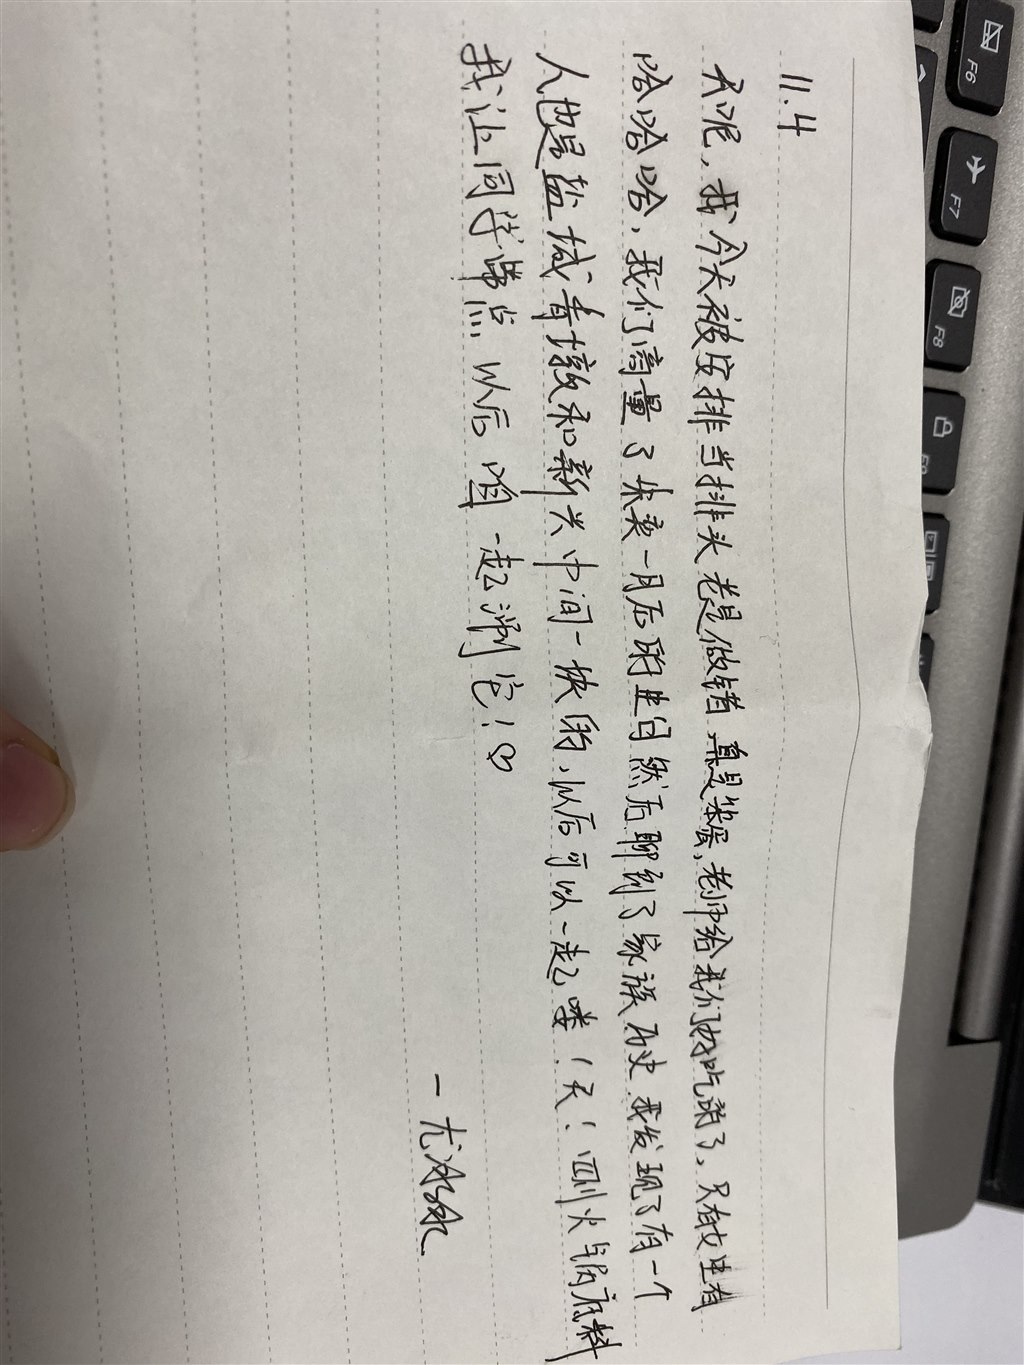 11.4
我今天被安排当排头老是做错,真是笨蛋,老师给我们好吃的了,只有女生有
哈哈哈,我们商量了朱奕一月后的生日然后聊到了家族历史 我发现了有一个
人也是盐城青墩和新兴中间一块的,以后可以一起喽!天!四川火锅底料
我让同学带点 以后咱一起涮它!♡
F6
F7
F8